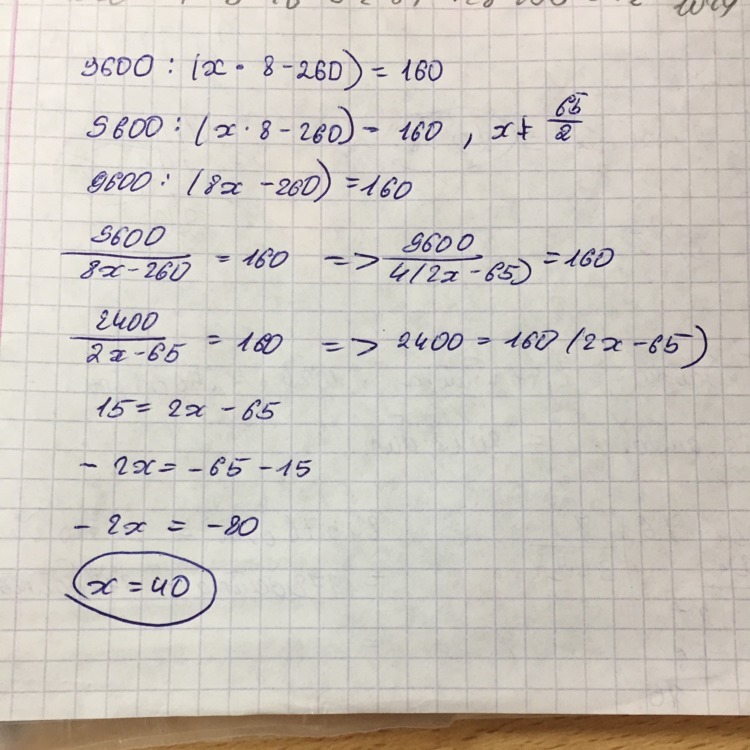 9600 : (x · 8 - 260) = 160
9600 : (x · 8 - 260) = 160 , x ≠ 65/2
9600 : (8x - 260) = 160
9600/(8x - 260) = 160 => 9600/(4(2x - 65)) = 160
2400/(2x - 65) = 160 => 2400 = 160 (2x - 65)
15 = 2x - 65
- 2x = -65 - 15
- 2x = -80
x = 40